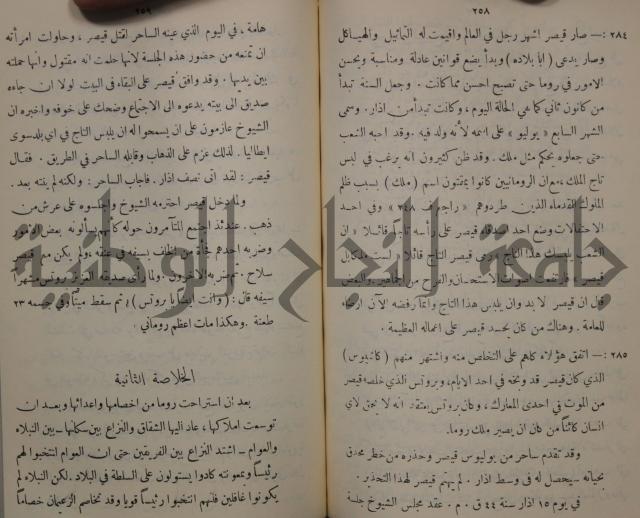 ٢٥٨
٢٨٤ :— صار قيصر اشهر رجل في العالم واقيمت له التماثيل والهياكل
وصار يدعى (ابا بلاده) وبدأ يضع قوانين عادلة ومناسبة ويحسن
الامور في روما حتى تصبح احسن مما كانت . وجعل السنة تبدأ
من كانون ثاني كما هي الحالة اليوم ، وكانت تبدأ من اذار . وسمى
الشهر السابع « يوليو » على اسمه لأنه ولد فيه . وقد احبه الشعب
حتى جعلوه يحكم مثل ملك . وقد ظن كثيرون انه يرغب في لبس
تاج الملك ، مع ان الرومانيين كانوا يمقتون اسم (ملك) بسبب ظلم
الملوك القدماء الذين طردوهم « راجع ف ٢٤٨ » وفي احد
الاحتفالات وضع احد اصدقاء قيصر على رأسه تاجاً قائلاً « ان
الشعب يلبسك هذا التاج » رمى قيصر التاج قائلا « لست ملكا بل
قيصر » فارتفعت اصوات الاستحسان والفرح من الجماهير والبعض
قال ان قيصر لا بد وان يلبس هذا التاج وانما رفضه الآن ارضاء
للعامة . وهناك من كان يحسد قيصر على اعماله العظيمة .
٢٨٥ :— اتفق هؤلاء كلهم على التخلص منه واشتهر منهم (كاسيوس)
الذي كان قيصر قد وبخه في احد الايام ، وبروتس الذي خلصه قيصر
من الموت في احدى المعارك ، وكان بروتس يعتقد انه لا يحق لاي
انسان كائناً من كان ان يصير ملك روما.
وقد تقدم ساحر من يوليوس قيصر وحذره من خطر محدق
بحياته سيحصل له في وسط اذار . لم يهتم قيصر لهذا التحذير .
في يوم ١٥ اذار سنة ٤٤ ق . م . عقد مجلس الشيوخ جلسة
٢٥٩
هامة ، في اليوم الذي عينه الساحر لقتل قيصر ، وحاولت امرأته
ان تمنعه من حضور هذه الجلسة لانها حلمت انه مقتول وانها حملته
بين يديها . وقد وافق قيصر على البقاء في البيت لولا ان جاءه
صديق الى بيته يدعوه الى الاجتماع وضحك على خوفه واخبره ان
الشيوخ عازمون على ان يسمحوا له ان يلبس التاج في اي بلد سوى
ايطاليا . لذلك عزم على الذهاب وقابله الساحر في الطريق . فقال
قيصر : لقد اتى نصف اذار . فاجاب الساحر : ولكنه لم ينته بعد .
ولما دخل قيصر احترمه الشيوخ واجلسوه على عرش من
ذهب . عندئذ اجتمع المتآمرون حوله كأنهم يسألونه بعض الامور
وضربه احدهم فجأة من الخلف بسيفه في عنقه ولم يكن مع قيصر
سلاح . ثم ضربه الآخرون . ولما رأى صديقه العزيز بروتس مشهراً
سيفه قال : (وانت ايضاً يا بروتس) ؛ ثم سقط ميتاً وفي جسمه ٢٣
طعنة . وهكذا مات اعظم روماني .
الخلاصة الثانية
بعد ان استراحت روما من اخصامها واعدائها وبعد ان
توسعت املاكها ، عاد اليها الشقاق والنزاع بين سكانها – بين النبلاء
والعوام – اشتد النزاع بين الفريقين حتى ان العوام انتخبوا لهم
رئيساً وبمعونته كادوا يستولون على السلطة في البلاد . لكن النبلاء لم
يكونوا غافلين فلنهم انتخبوا رئيساً قويا وقد تخاصم الزعيمان خصاماً
جامعة النجاح الوطنية